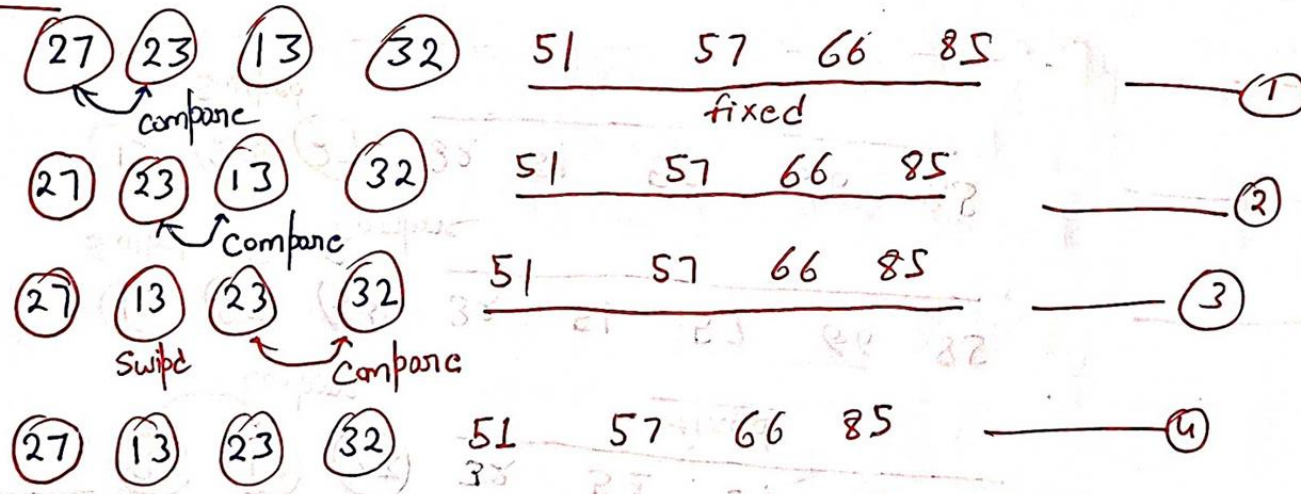 27 23 13 32 51 57 66 85 1
compare fixed
27 23 13 32 51 57 66 85 2
compare
27 13 23 32 51 57 66 85 3
Swipe Compare
27 13 23 32 51 57 66 85 4